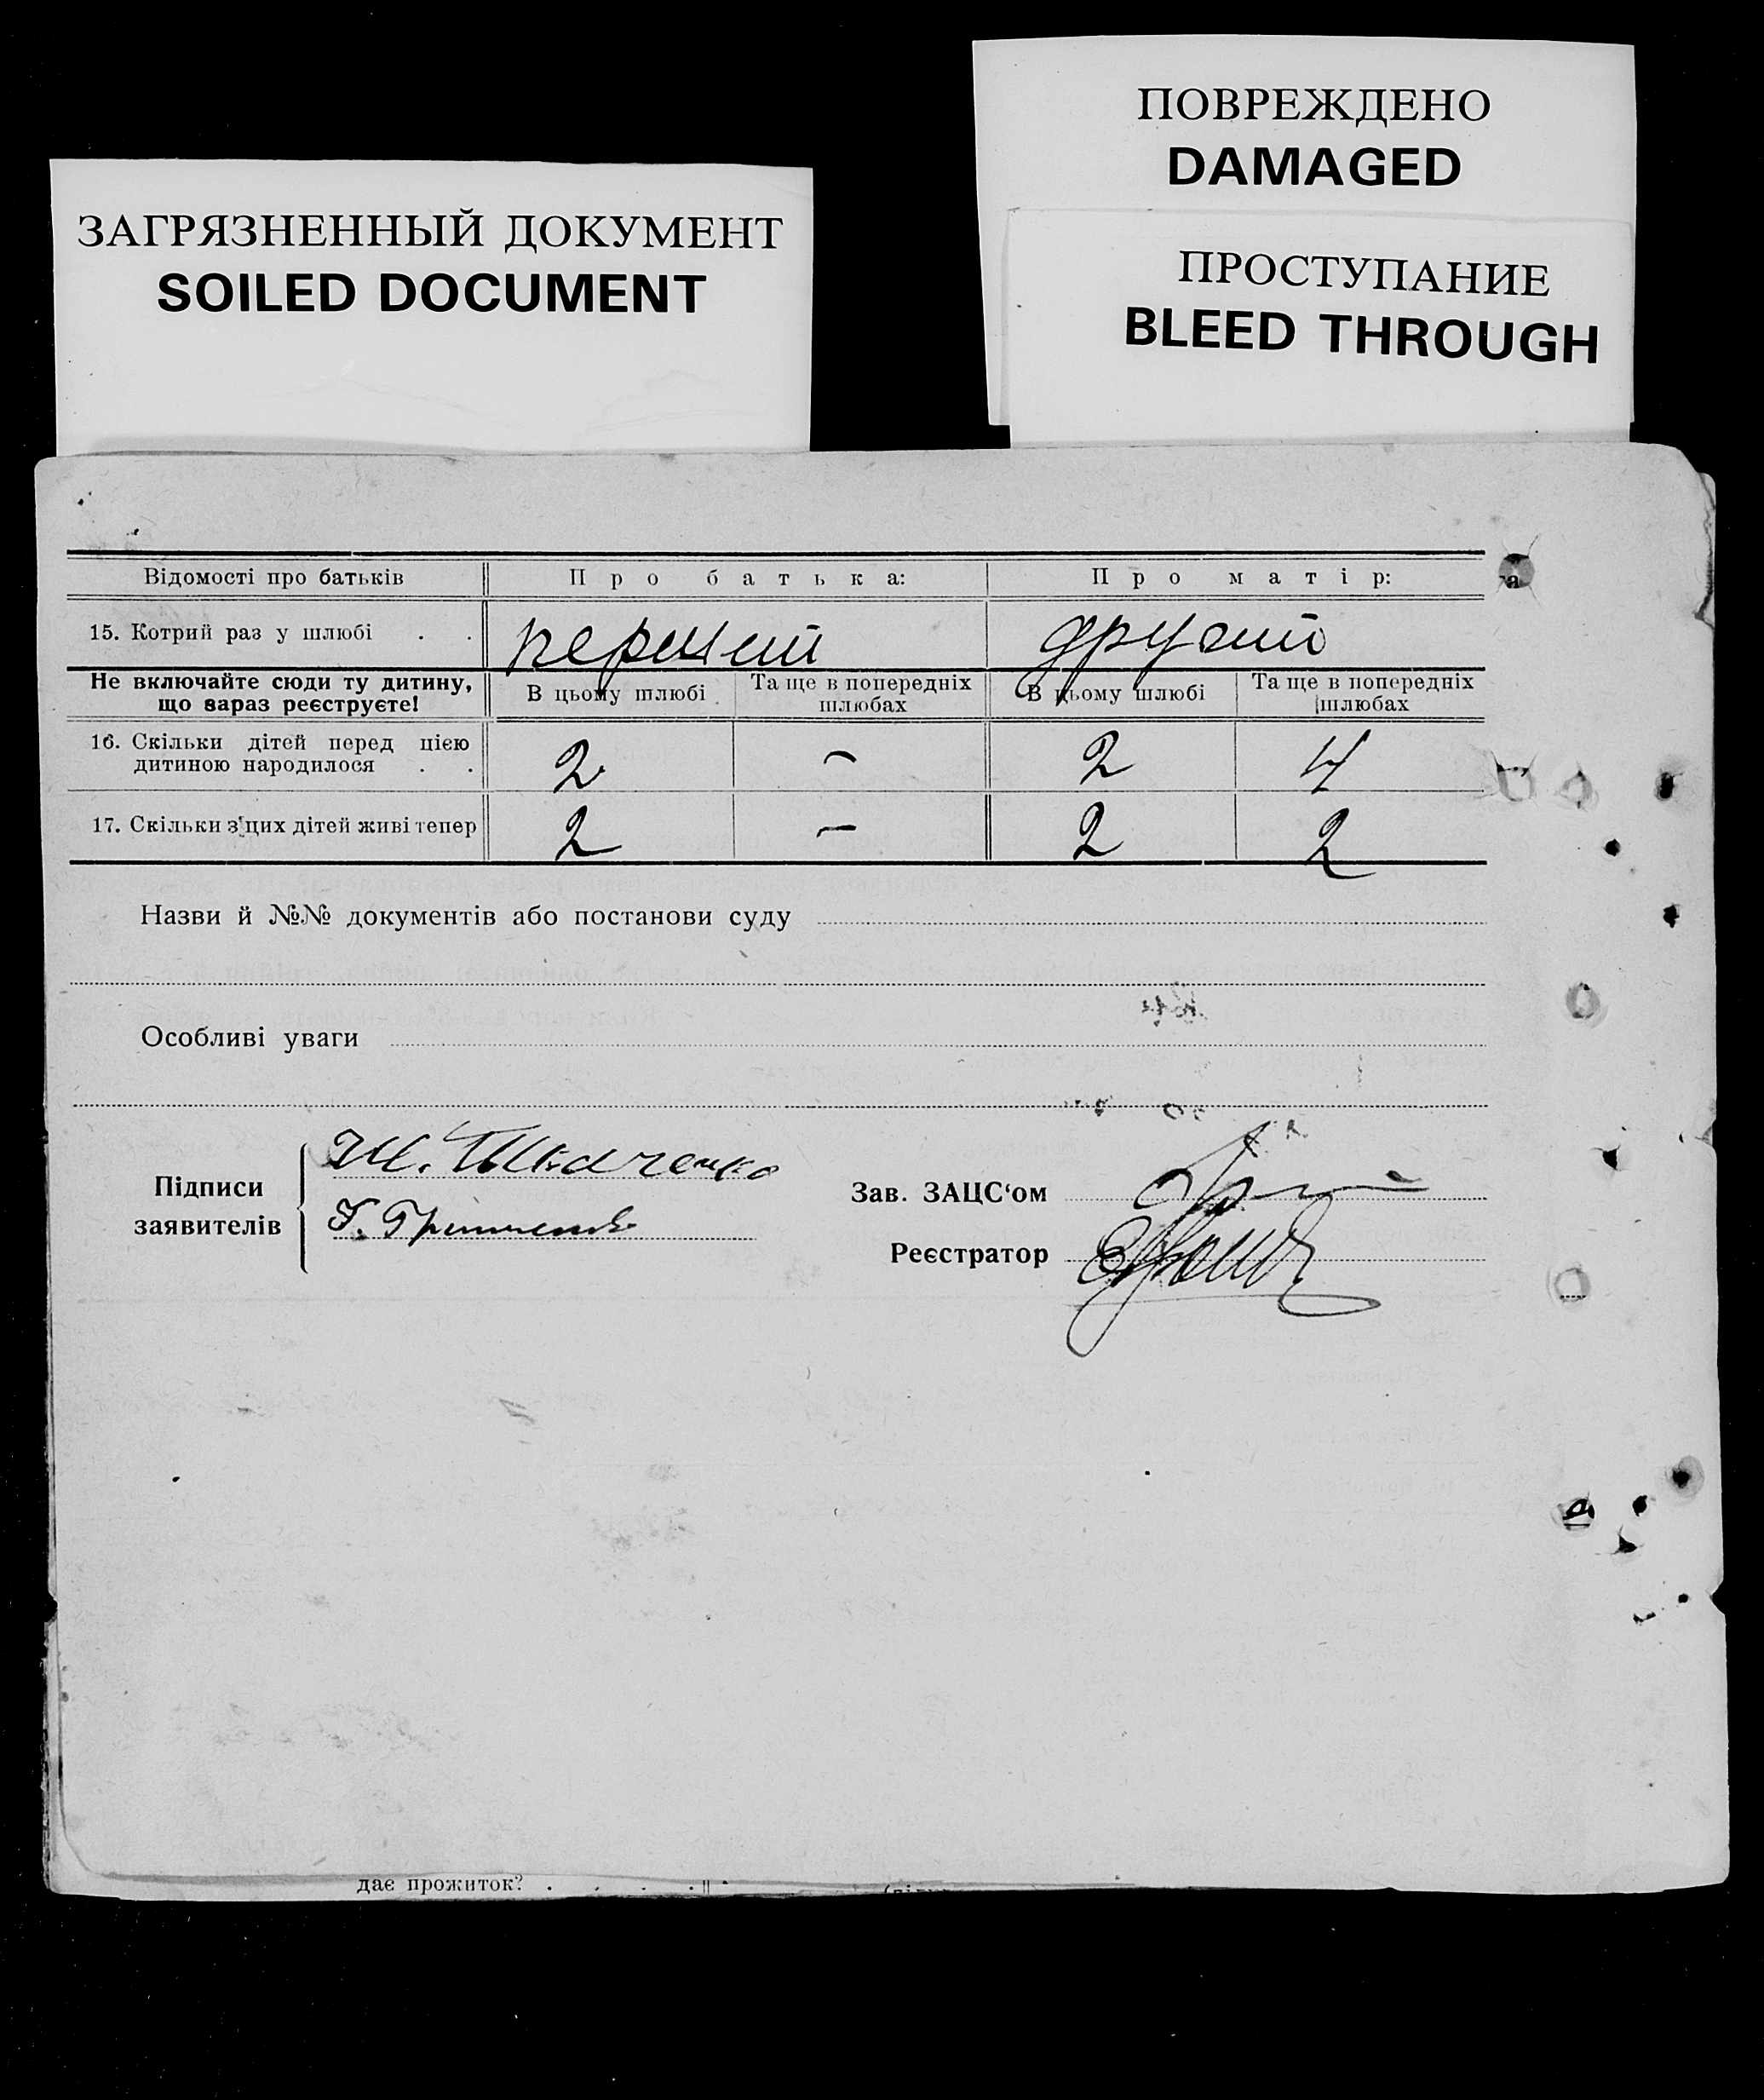 ПОВРЕЖДЕНО
DAMAGED
ЗАГРЯЗНЕННЫЙ ДОКУМЕНТ
SOILED DOCUMENT
ПРОСТУПАНИЕ
BLEED THROUGH
Відомості про батьків Про батька: Про матір:
15. Котрий раз у шлюбі . . перший другий
Не включайте сюди ту дитину, що зараз реєструєте! В цьому шлюбі Та ще в попередніх шлюбах В цьому шлюбі Та ще в попередніх шлюбах
16. Скільки дітей перед цією дитиною народилося . . 2 – 2 4
17. Скільки з цих дітей живі тепер 2 – 2 2
Назви й №№ документів або постанови суду
Особливі уваги
Підписи заявителів
Ткаченко
Зав. ЗАЦС‘ом
Реєстратор
дає прожиток? . . . .